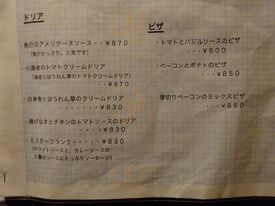 ドリア
・魚介のアメリケーヌソース・・¥870
(魚介たっぷり。人気です)
・小海老のトマトクリームドリア
(海老とほうれん草のトマトクリームドリア)
・・・・¥870
・白身魚とほうれん草のクリームドリア
・・・・¥830
・揚げなすとチキンのトマトソースのドリア
・・・・¥830
・ミスターフランク・・・・¥830
(ホワイトソースと、カレーソースの
2層のソースにたっぷりソーセージ)
ピザ
・トマトとバジルソースのピザ
・・・¥800
・ベーコンとポテトのピザ
・・・¥850
・厚切りベーコンのミックスピザ
・・・¥850